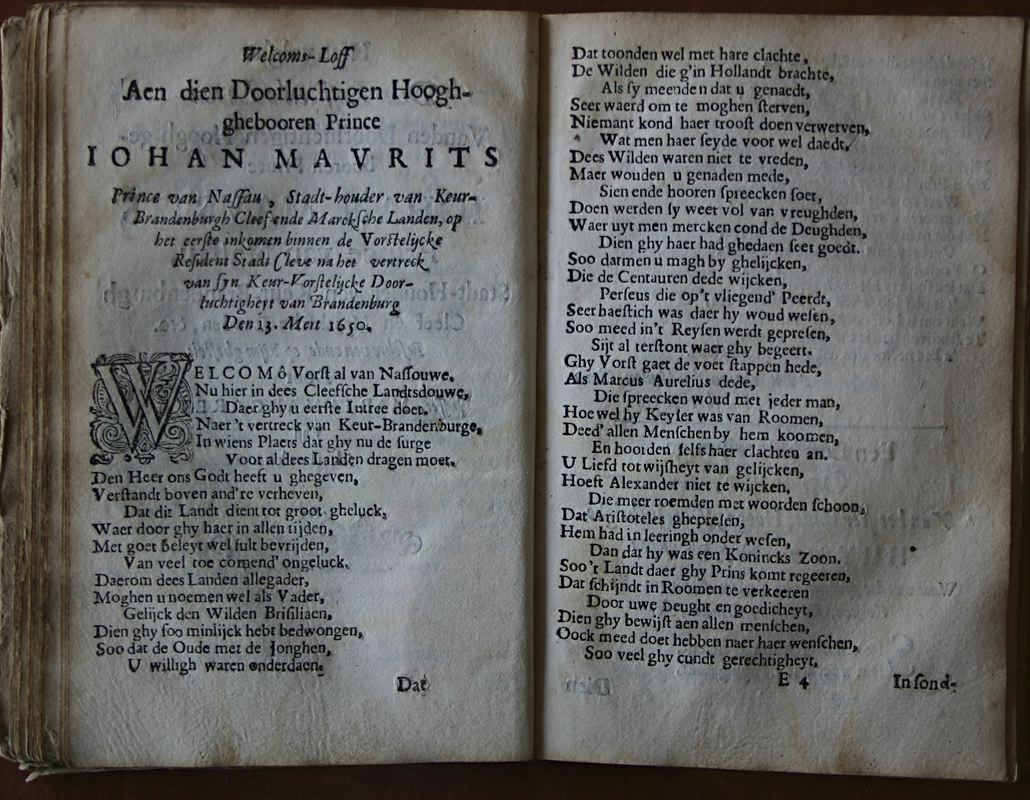 Welcoms-Loff
Aen dien Doorluchtigen Hoogh-
ghebooren Prince
IOHAN MAVRITS
Prince van Naſſau, Stadt-houder van Keur-
Brandenburgh Cleef ende Marckſche Landen, op
het eerſte inkomen binnen de Vorſtelijcke
Reſident Stadt Cleve na het vertreck
van ſijn Keur-Vorſtelijcke Door-
luchtigheyt van Brandenburg
Den 13. Mert 1650.
WELCOM ô Vorſt al van Naſſouwe,
Nu hier in dees Cleefſche Landtsdouwe,
Daer ghy u eerſte Intree doet.
Naer 't vertreck van Keut-Brandenburge,
In wiens Plaets dat ghy nu de ſurge
Voor al dees Landen dragen moet.
Den Heer ons Godt heeft u ghegeven,
Verſtandt boven and're verheven,
Dat dit Landt dient tot groot gheluck,
Waer door ghy haer in allen tijden,
Met goet beleyt wel ſult bevrijden,
Van veel toe comend' ongeluck.
Daerom dees Landen allegader,
Moghen u noemen wel als Vader,
Gelijck den Wilden Briſiliaen,
Dien ghy ſoo minlijck hebt bedwongen,
Soo dat de Oude met de Jonghen,
U willigh waren onderdaen.
Dat
Dat toonden wel met hare clachte,
De Wilden die g'in Hollandt brachte,
Als ſy meenden dat u genaedt,
Seer waerd om te moghen ſterven,
Niemant kond haer trooſt doen verwerven,
Wat men haer ſeyde voor wel daedt.
Dees Wilden waren niet te vreden,
Maer wouden u genaden mede,
Sien ende hooren ſpreecken ſoet,
Doen werden ſy weer vol van vreughden,
Waer uyt men mercken cond de Deughden,
Dien ghy haer had ghedaen ſeet goedt.
Soo datmen u magh by ghelijcken,
Die de Centauren dede wijcken,
Perſeus die op't vliegend' Peerdt,
Seer haeſtich was daer hy woud weſen,
Soo meed in't Reyſen werdt gepreſen,
Sijt al terſtont waer ghy begeert.
Ghy Vorſt gaet de voet ſtappen hede,
Als Marcus Aurelius dede,
Die ſpreecken woud met jeder man,
Hoe wel hy Keyſer was van Roomen,
Deed' allen Menſchen by hem koomen,
En hoorden ſelfs haer clachten an.
U Liefd tot wijſheyt van gelijcken,
Hoeft Alexander niet te wijcken,
Die meer roemden met woorden ſchoon,
Dat Ariſtoteles ghepreſen,
Hem had in leeringh onder weſen,
Dan dat hy was een Konincks Zoon.
Soo't Landt daer ghy Prins komt regeeren,
Dat ſchijndt in Roomen te verkeeren
Door uwe Deught en goedicheyt,
Dien ghy bewijſt aen allen menſchen,
Oock meed doet hebben naer haer wenſchen,
Soo veel ghy cundt gerechtigheyt,
E 4
Inſond-